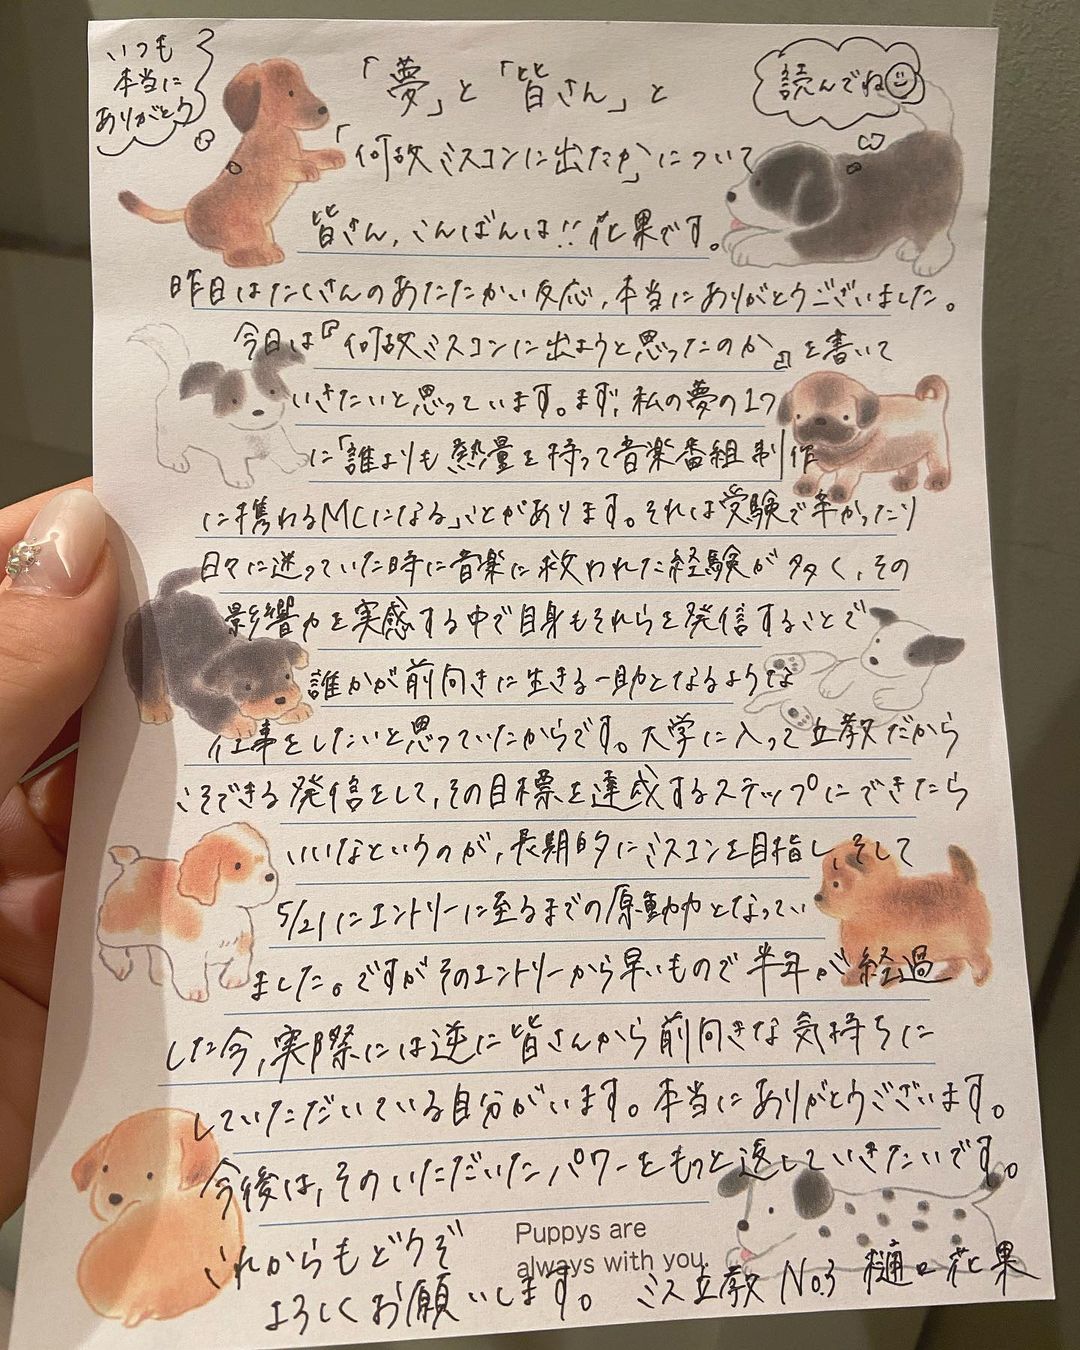 いつも
本当に
ありがとう
読んでね
「夢」と「皆さん」と
「何故ミスコンに出たか」について
皆さん、こんばんは!!花果です。
昨日はたくさんのあたたかい反応、本当にありがとうございました。
今日は『何故ミスコンに出ようと思ったのか』を書いて
いきたいと思っています。まず、私の夢の1つ
に「誰よりも熱量を持って音楽番組制作
に携わるMCになる」ことがあります。それは受験で辛かったり
日々に迷っていた時に音楽に救われた経験が多く、その
影響力を実感する中で自身もそれらを発信することで
誰かが前向きに生きる一助となるような
仕事をしたいと思っていたからです。大学に入って立教だから
こそできる発信をして、その目標を達成するステップにできたら
いいなというのが、長期的にミスコンを目指し、そして
5/21にエントリーに至るまでの原動力となってい
ました。ですがそのエントリーから早いもので半年が経過
した今、実際には逆に皆さんから前向きな気持ちに
していただいている自分がいます。本当にありがとうございます。
今後は、そのいただいたパワーをもっと返していきたいです。
これからもどうぞ
よろしくお願いします。
Puppys are
always with you
ミス立教 No.3 樋口花果